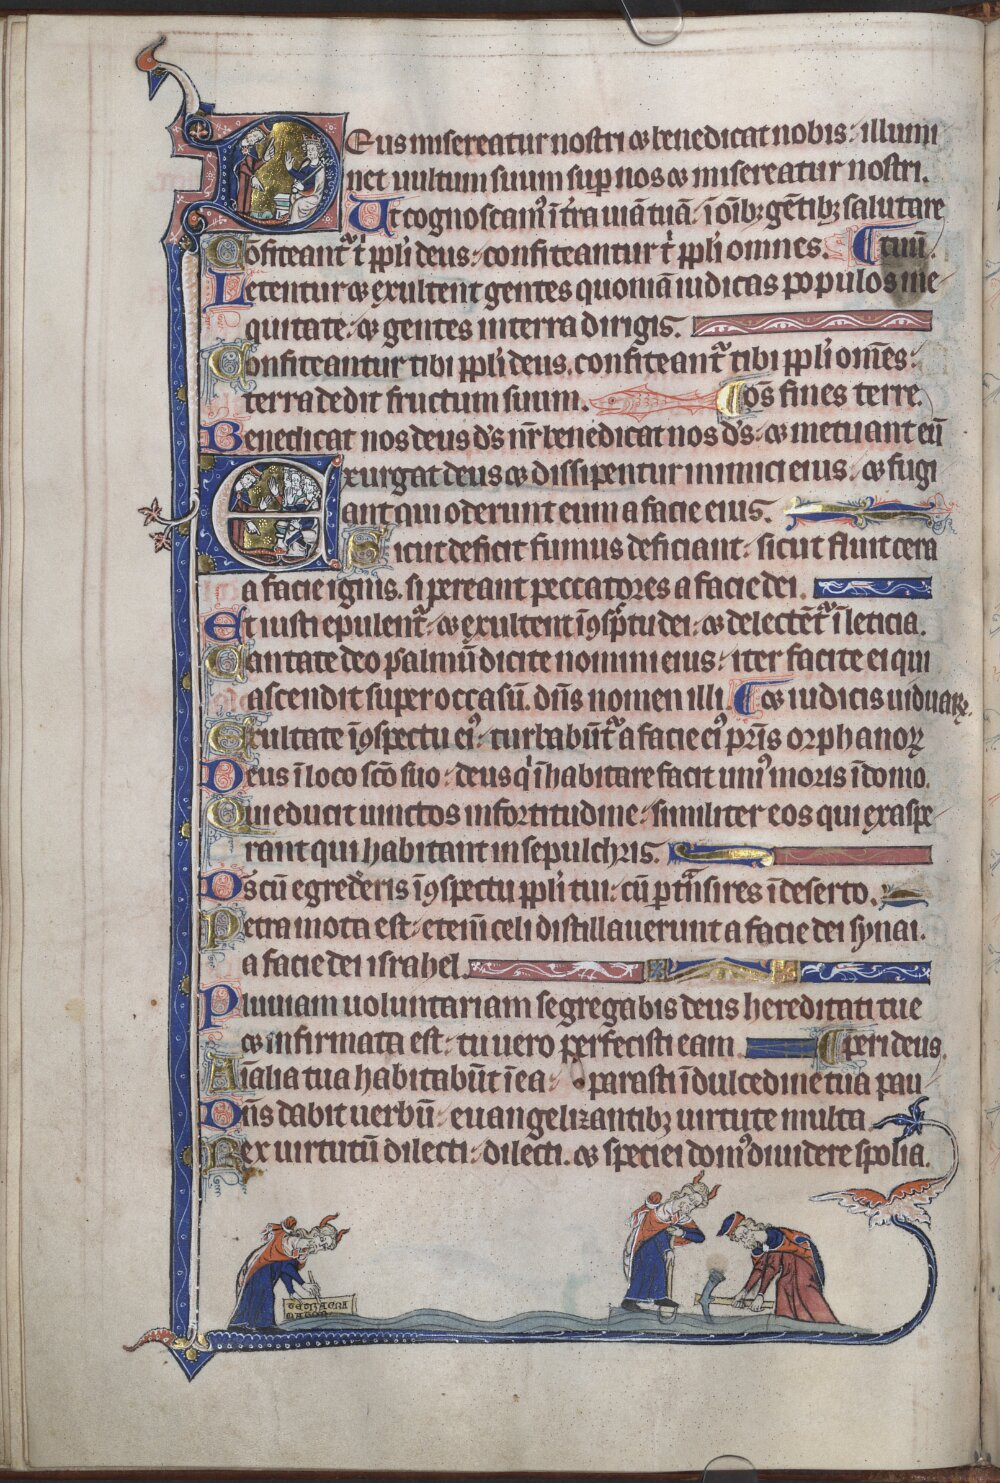 Deus misereatur nostri & benedicat nobis: illumi
net uultum suum sup nos & misereatur nostri.
Ut cognoscam᷒ ı̄ t̄ra uiā tuā: ī oı̄bꝫ gētibꝫ salutare
Cōfiteant᷑ t' ppl'i deus: confiteantur t' ppl'i omnes. tuū.
Letentur & exultent gentes quoniā iudicas populos in e
quitate: & gentes in terra dirigis.
Confiteantur tibi ppl'i deus. confiteant᷑ tibi ppl'i om̄es:
terra dedit fructum suum. os̄ fines terre.
Benedicat nos deus d's nr̄ benedicat nos d's: & metuant eū
Exurgat deus & dissipentur inimici eius. & fugi
ant qui oderunt eum a facie eius.
Sicut deficit fumus deficiant: sicut fluit cera
a facie ignis. si pereant peccatores a facie dei.
Et iusti epulent᷑: & exultent ī ꝯspc̄tu dei: & delectēt᷑ ī leticia.
Cantate deo psalmū dicite nomini eius: iter facite ei qui
ascendit super occasū. dn̄s nomen illi. & iudicis uiduaꝝ.
Exultate ī ꝯspectu ei᷒: turbabūt᷑ a facie ei᷒ pr̄is orphanoꝝ
Deus ī loco sc̄o suo: deus qⁱ īhabitare facit uni᷒ moris ī domo.
Qui educit uinctos in fortitudine: similiter eos qui exaspe
rant qui habitant in sepulchris.
Ds cū egrederis ī ꝯspectu ppl'i tui: cū ꝑtn̄sires ī deserto.
Petra mota est: etenī celi distillauerunt a facie dei synai.
a facie dei israhel.
Pluuiam uoluntariam segregabis deus hereditati tue
& infirmata est: tu uero perfecisti eam. peri deus.
Aı̄alia tua habitabūt ī ea: parasti ī dulcedine tua pau
Dn̄s dabit uerbū: euangelizantibꝫ uirtute multa
Rex uirtutū dilecti: dilecti. & speciei dom᷒ diuidere spolia.
tetragra
maton